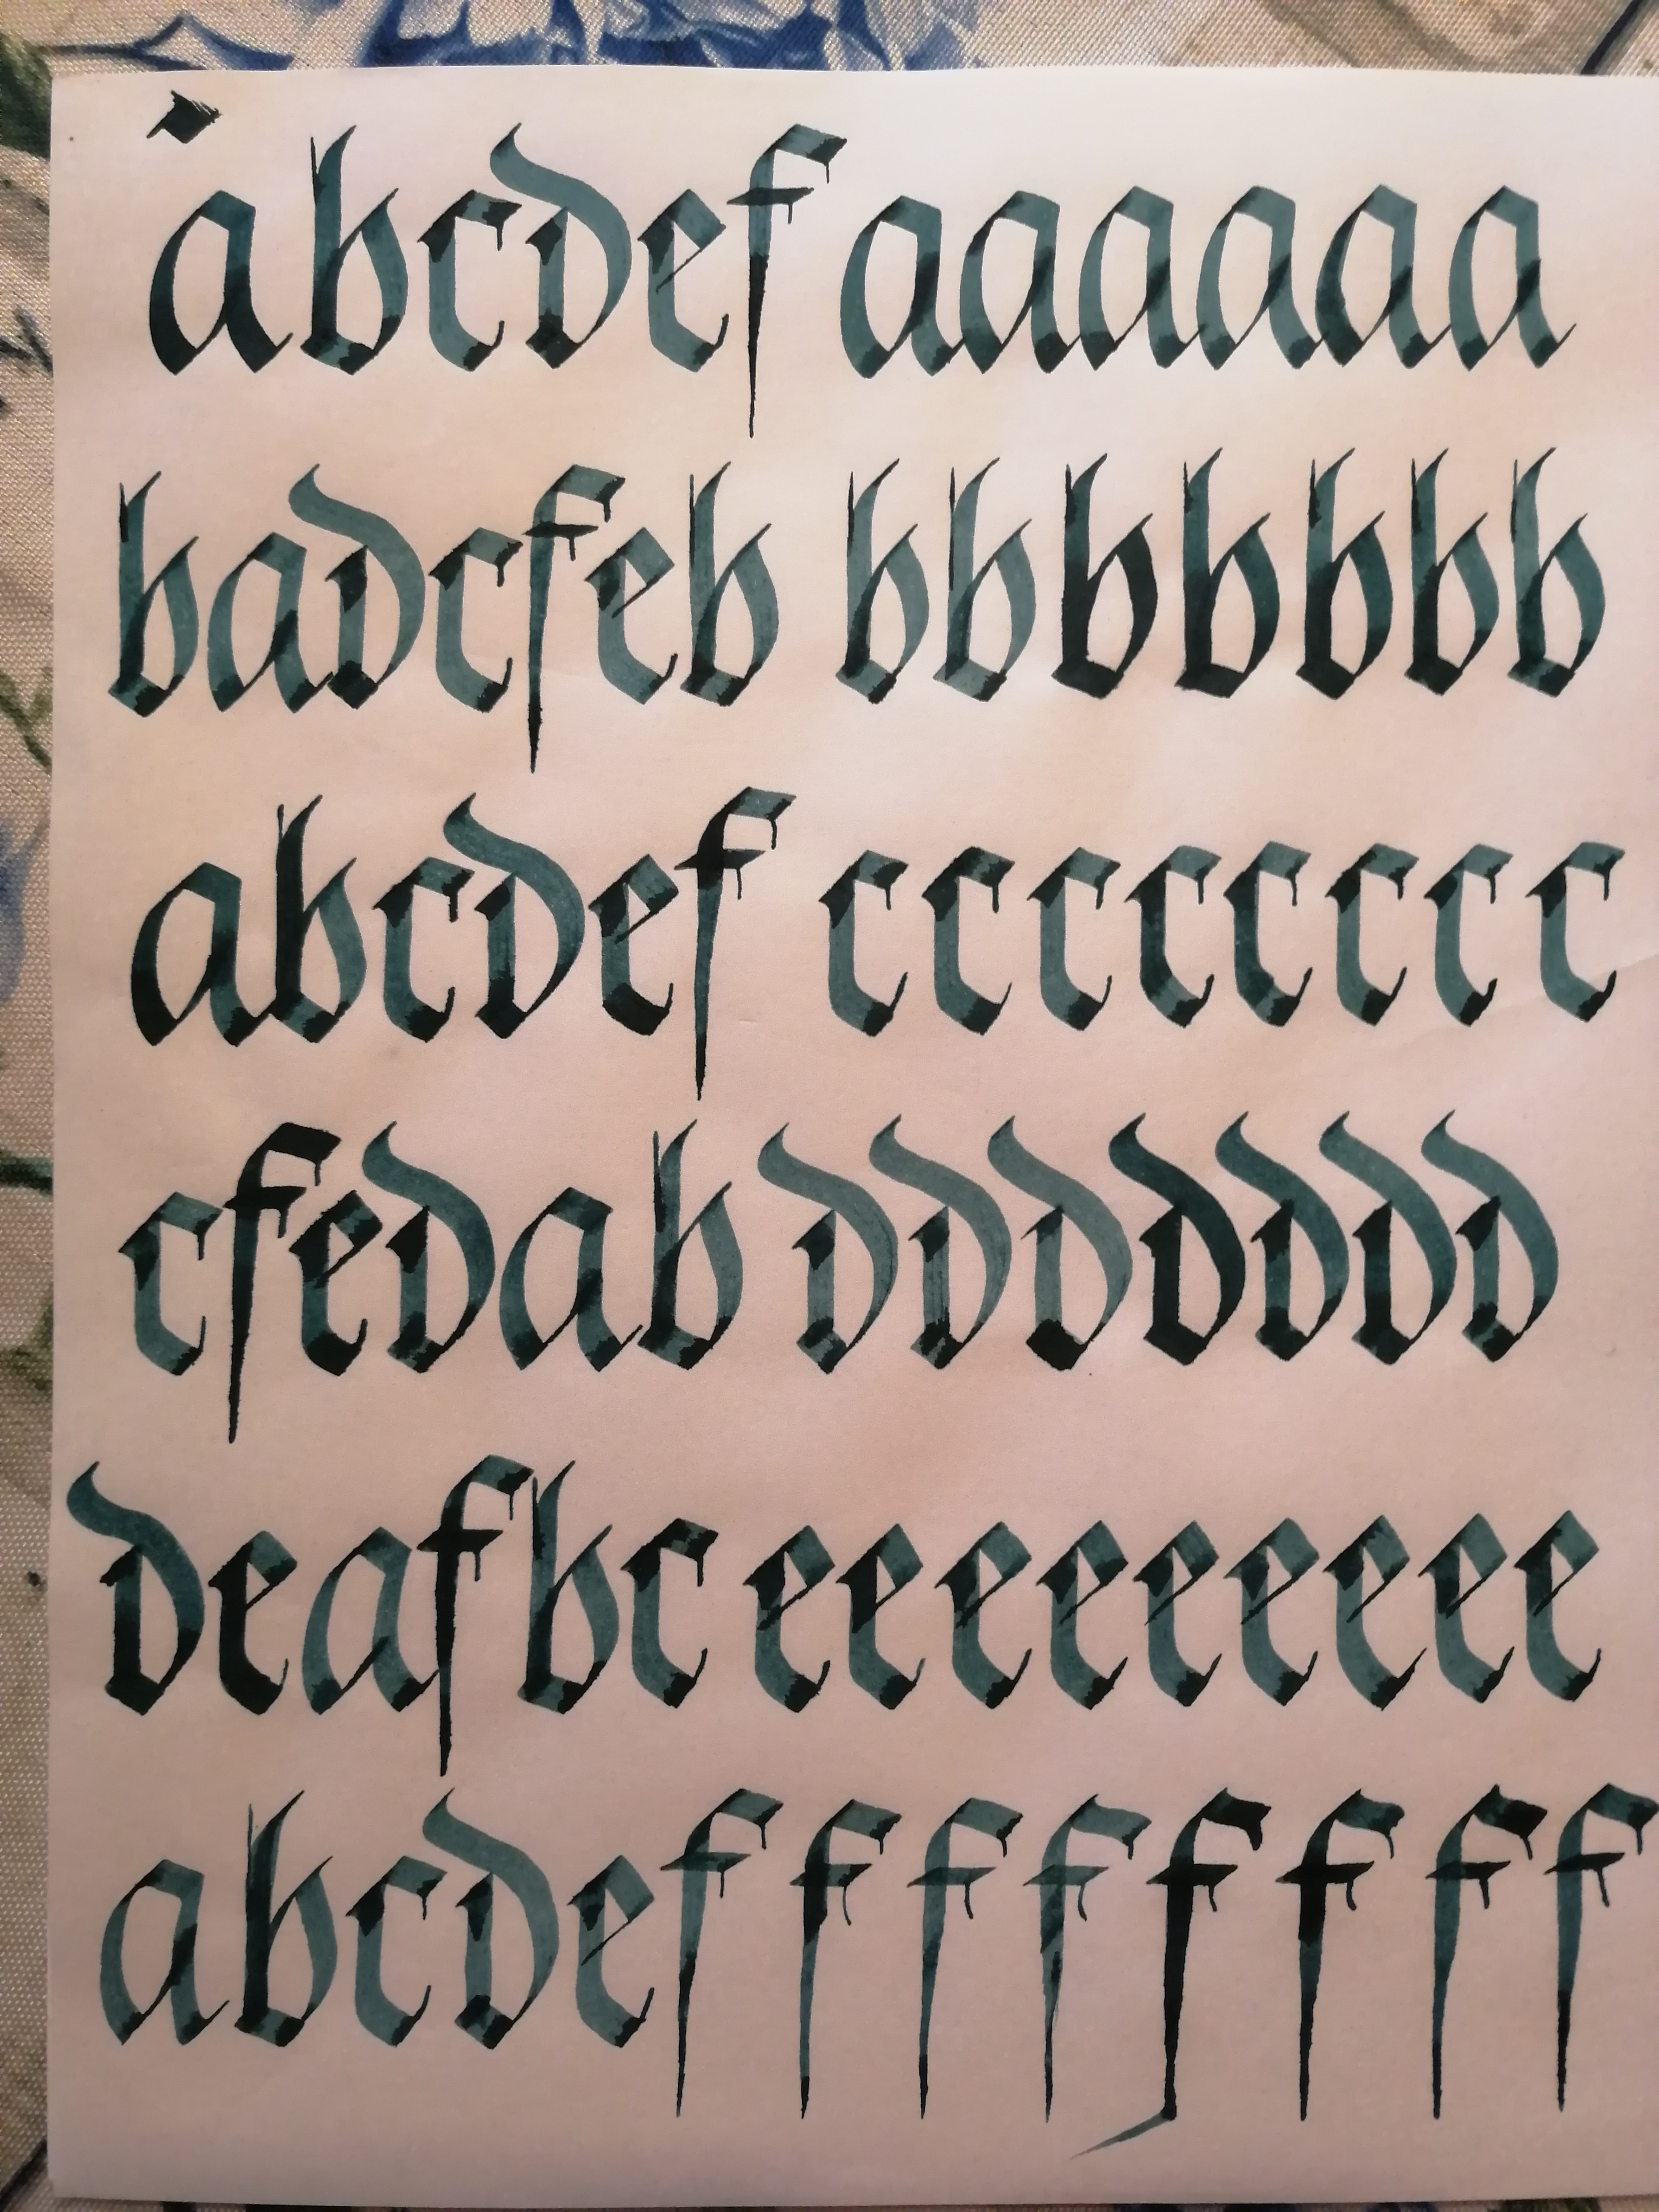 abcdef aaaaaa
badcfeb bbbbbbb
abcdef cccccccc
cfedab ddddddd
deafbc eeeeeeeee
abcdef f f f f f f f